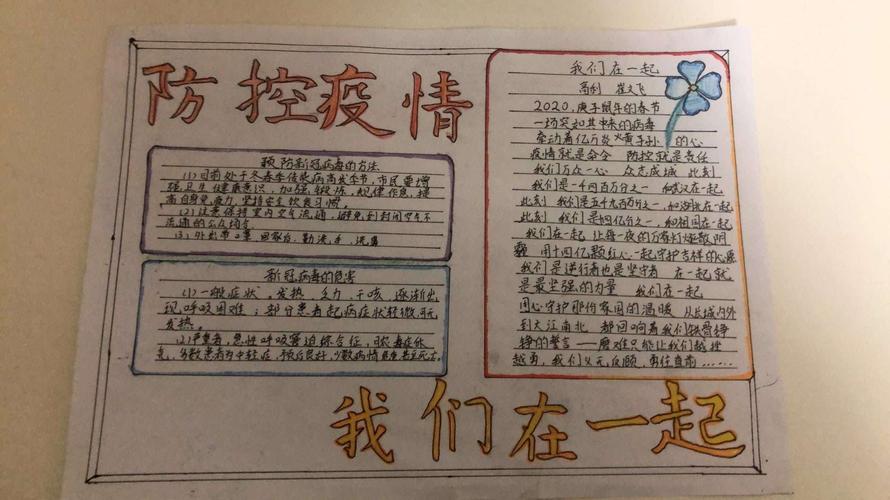 防控疫情
预防新冠病毒的方法
(1)目前处于冬春季传染病高发季节,市民要增
强卫生健康意识,加强锻炼,规律作息,提
高自身免疫力,坚持安全饮食习惯。
(2)注意保持室内空气流通,避免到封闭空气不
流通的公众场合
(3)外出带口罩 回家后,勤洗手,洗鼻
新冠病毒的危害
(1)一般症状,发热,乏力,干咳,逐渐出
现呼吸困难;部分患者起病症状轻微,可无
发热。
(2)严重者,急性呼吸窘迫综合征,
多数患者为中轻症,预后良好,少数病情危重甚至死亡。
我们在一起
高利 崔文飞
2020,庚子鼠年的春节
一场突如其来的病毒
牵动着亿万炎黄子孙的心
疫情就是命令 防控就是责任
我们万众一心 众志成城 此刻
我们是一千四百万分之一 和武汉在一起
此刻 我们是五千九百万分之一,和湖北在一起
此刻 我们是十四亿分之一,和祖国在一起
我们在一起 让每一夜的万家灯火驱散阴
霾 用十四亿颗红心一起守护吉祥的心愿
我们是逆行者也是坚守者 在一起就
是最坚强的力量 我们在一起
用心守护那份家国的温暖 从长城内外
到大江南北 都回响着我们铁骨铮
铮的誓言——磨难只能让我们越挫
越勇,我们义无反顾,勇往直前……
我们在一起